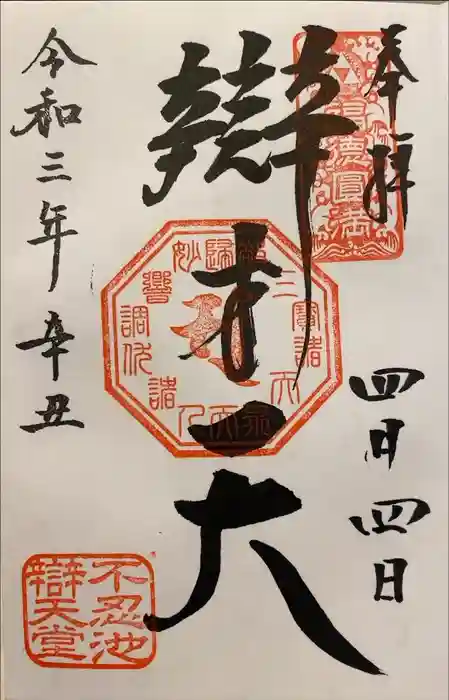 奉拝
四月四日
德圓満
辯才天
令和三年辛丑
不忍池
辯天堂